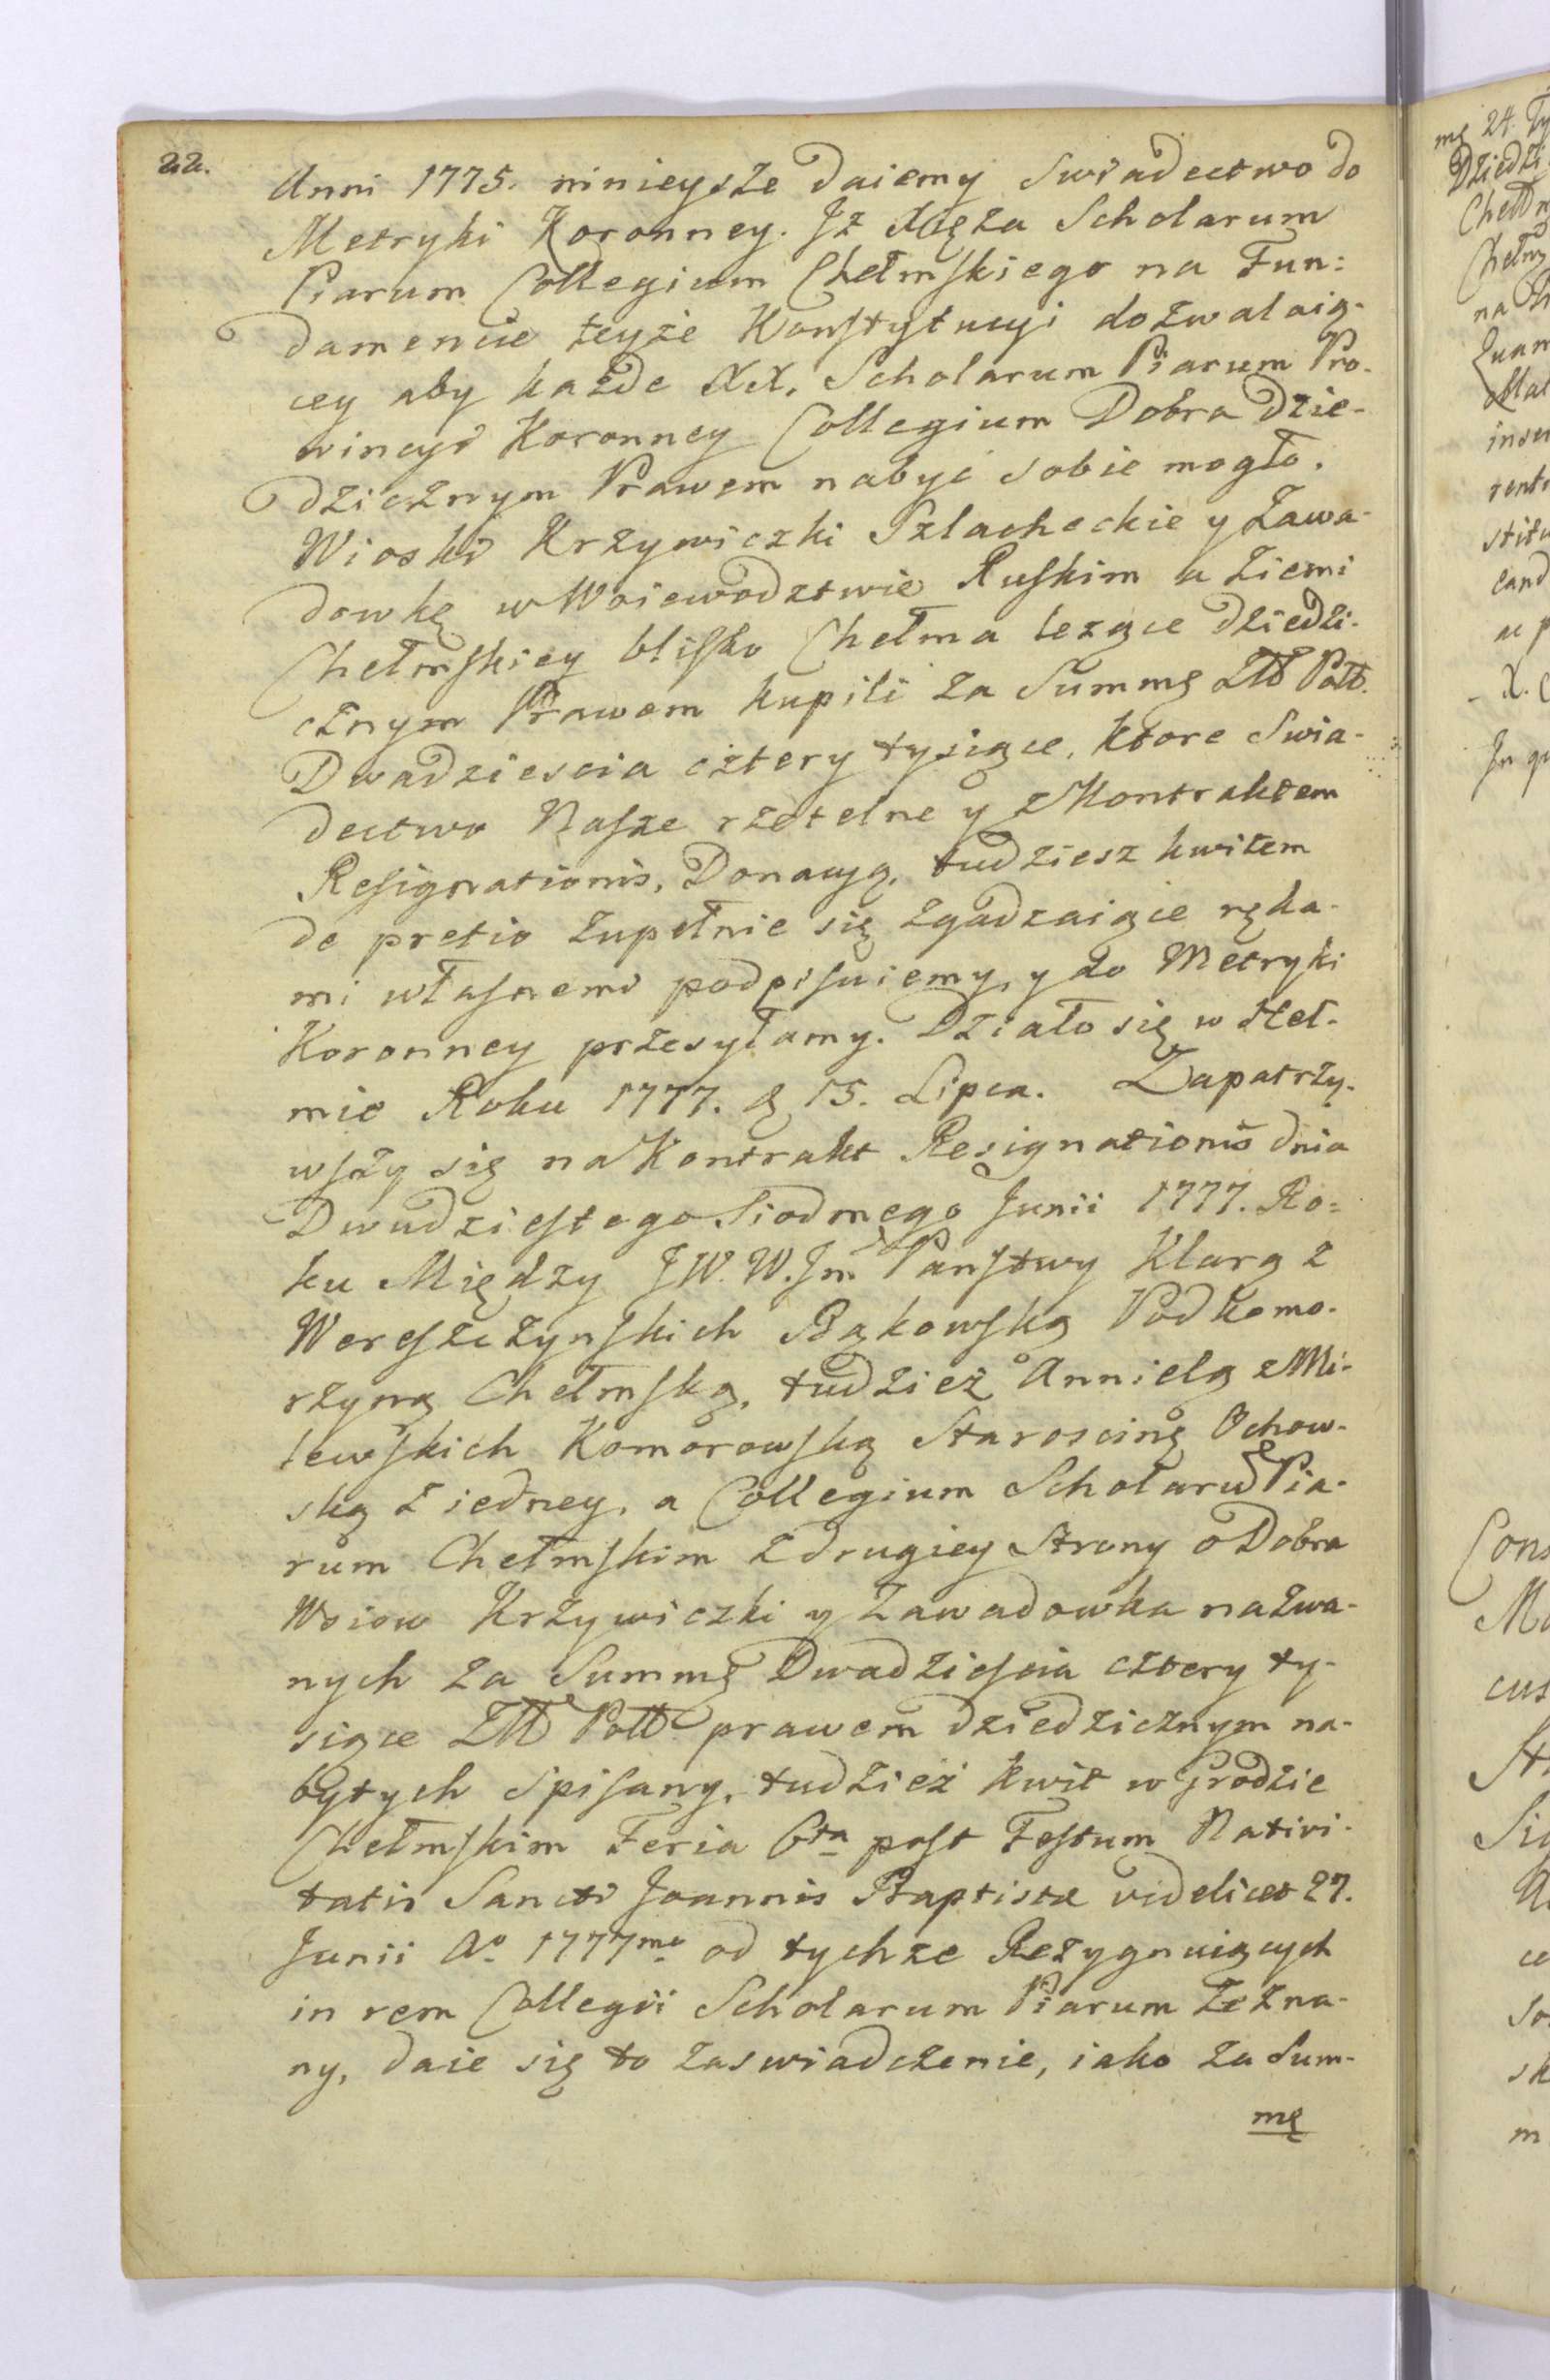 22.
Anni 1775. ninieysze daiemy Swiadectwo do
Metryki Koronney. Jż Xięża Scholarum
Piarum Collegium Chełmskiego na Fun:
damencie teyże Konstytucyi dozwalaią-
cey aby każde XX. Scholarum Piarum Pro-
wincyi Koronney Collegium Dobra dzie-
dzicznym Prawem nabyć sobie mogło.
Wioski Krzywiczki Szlacheckie y Zawa-
dowkę w Woiewodztwie Ruskim a Ziemi
Chełmskiey blisko Chełma leżące dziedzi-
cznym Prawem kupili za Summę Złł Poll.
Dwadziescia cztery tysiące, ktore Swia-
dectwo Nasze rzetelne y z Kontraktem
Resignationis, Donacyą, tudziesz kwitem
de pretio zupełnie się zgadzaiące ręka-
mi własnemi podpisuiemy, y do Metryki
Koronney przesyłamy. Działo się w Heł-
mie Roku 1777. d 15. Lipca. Zapatrzy-
wszy się na Kontrakt Resignationis dnia
Dwudziestego Siodmego Junii 1777. Ro=
ku Między JW. W. Jm Panstwy Klarą z
Wereszczynskich Bąkowską Podkomo-
rzyną Chełmską, tudzież Annielą z Mi-
lewskich Komorowską Staroscing Ochow-
ską z iedney, a Collegium Scholarum Pia-
rum Chełmskim z drugiey Strony o Dobra
Wsiow Krzywiczki y Zawadowka nazwa-
nych za Summę Dwadziescia cztery ty-
siące Złł Poll prawem dziedzicznym na-
bytych spisany, tudzież kwit w Grodzie
Chełmskim Feria 6ta post Festum Nativi-
tatis Sancti Joannis Baptistæ videlicet 27.
Junii Ao 1777mo od tychże Rezygnuiących
in rem Collegii Scholarum Piarum zezna-
ny, daie się to zaswiadczenie, iako za Sum-
mę